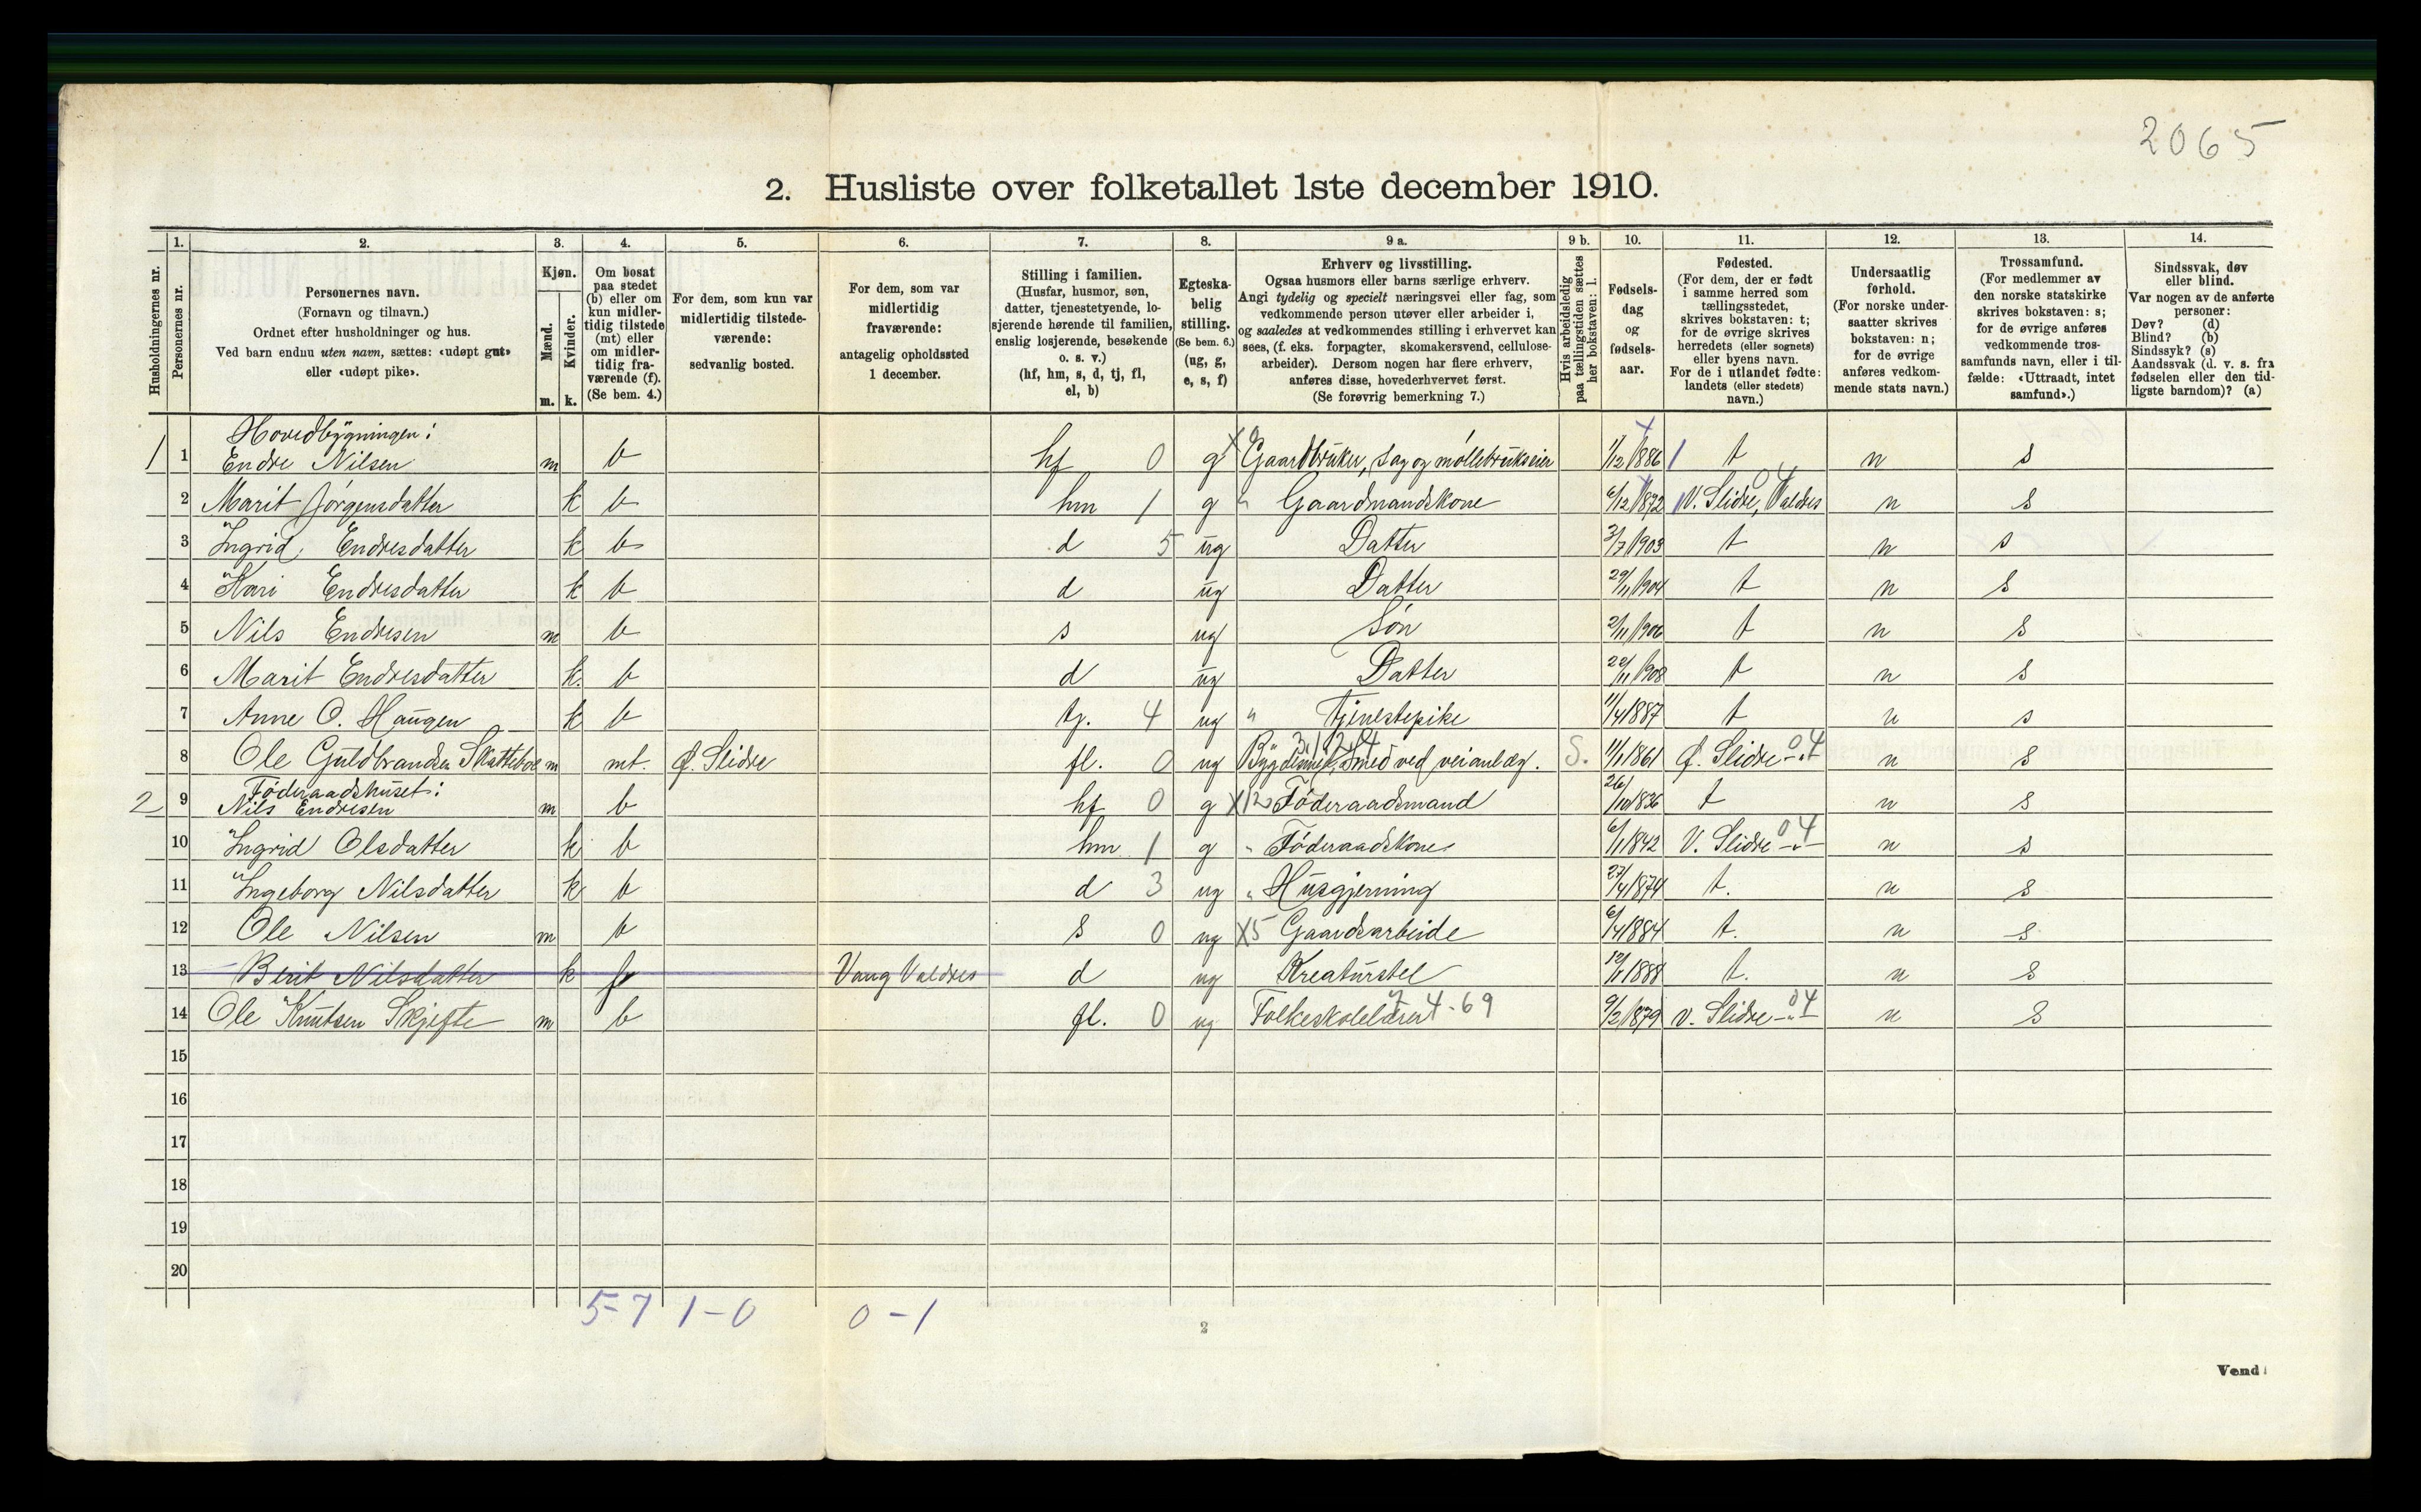 2065
2. Husliste over folketallet 1ste december 1910.
Husholdningernes nr.
1.
Personernes nr.
2.
Personernes navn.
(Fornavn og tilnavn.)
Ordnet efter husholdninger og hus.
Ved barn endnu uten navn, sættes: «udøpt gut»
eller «udøpt pike».
3.
Kjøn.
Mænd.
m.
Kvinder.
k.
4.
Om bosat
paa stedet
(b) eller om
kun midler-
tidig tilstede
(mt) eller
om midler-
tidig fra-
værende (f).
(Se bem. 4.)
5.
For dem, som kun var
midlertidig tilstede-
værende:
sedvanlig bosted.
6.
For dem, som var
midlertidig
fraværende:
antagelig opholdssted
1 december.
7.
Stilling i familien.
(Husfar, husmor, søn,
datter, tjenestetyende, lo-
sjerende hørende til familien,
enslig losjerende, besøkende
o. s. v.)
(hf, hm, s, d, tj, fl,
el, b)
8.
Egteska-
belig
stilling.
(Se bem. 6.)
(ug, g,
e, s, f)
9 a.
Erhverv og livsstilling.
Ogsaa husmors eller barns særlige erhverv.
Angi tydelig og specielt næringsvei eller fag, som
vedkommende person utøver eller arbeider i,
og saaledes at vedkommendes stilling i erhvervet kan
sees, (f. eks. forpagter, skomakersvend, cellulose-
arbeider). Dersom nogen har flere erhverv,
anføres disse, hovederhvervet først.
(Se forøvrig bemerkning 7.)
9 b.
Hvis arbeidsledig
paa tællingstiden sættes
her bokstaven: l.
10.
Fødsels-
dag
og
fødsels-
aar.
11.
Fødested.
(For dem, der er født
i samme herred som
tællingsstedet,
skrives bokstaven: t;
for de øvrige skrives
herredets (eller sognets)
eller byens navn.
For de i utlandet fødte:
landets (eller stedets)
navn.)
12.
Undersaatlig
forhold.
(For norske under-
saatter skrives
bokstaven: n;
for de øvrige
anføres vedkom-
mende stats navn.)
13.
Trossamfund.
(For medlemmer av
den norske statskirke
skrives bokstaven: s;
for de øvrige anføres
vedkommende tros-
samfunds navn, eller i til-
fælde: «Uttraadt, intet
samfund».)
14.
Sindssvak, døv
eller blind.
Var nogen av de anførte
personer:
Døv? (d)
Blind? (b)
Sindssyk? (s)
Aandssvak (d. v. s. fra
fødselen eller den tid-
ligste barndom)? (a)
Hovedbygningen:
1 1 Endre Nilsen m b hf 0 g X Gaardbruker, sag og møllebrukseier 1/12 1886 1 t n s
2 Marit Jørgensdatter k b hm 1 g " Gaardmandskone 6/12 1872 V. Slidre, Valdres 04 n s
3 Ingrid Endresdatter k b d 5 ug Datter 3/7 1903 t n s
4 Kari Endresdatter k b d ug Datter 29/11 1904 t n s
5 Nils Endresen m b s ug Søn 2/11 1906 t n s
6 Marit Endresdatter k. b d ug Datter 22/11 1908 t n s
7 Anne O. Haugen k b tj. 4 ug " Tjenestepike 11/4 1887 t n s
8 Ole Guldbrandsen Skattebo m mt. Ø. Slidre fl. 0 ug Bygdesmed, Smed ved veianlæg. S. 11/1 1861 Ø. Slidre 04 n s
Føderaadshuset:
2 9 Nils Endresen m b hf 0 g X12 Føderaadsmand 26/10 1836 t n s
10 Ingrid Olsdatter k b hm 1 g " Føderaadskone 6/1 1842 V. Slidre 04 n s
11 Ingeborg Nilsdatter k b d 3 ug " Husgjerning 27/4 1874 t. n s
12 Ole Nilsen m b s 0 ug X5 Gaardsarbeide 6/4 1884 t. n s
13 Berit Nilsdatter k f Vang Valdres d ug Kreaturstel 12/1 1888 t. n s
14 Ole Knutsen Skjefte m b fl. 0 ug Folkeskolelærer 4-69 9/2 1879 V. Slidre 04 n s
15
16
17
18
19
20
5-7 1-0 0-1
2
Vend!